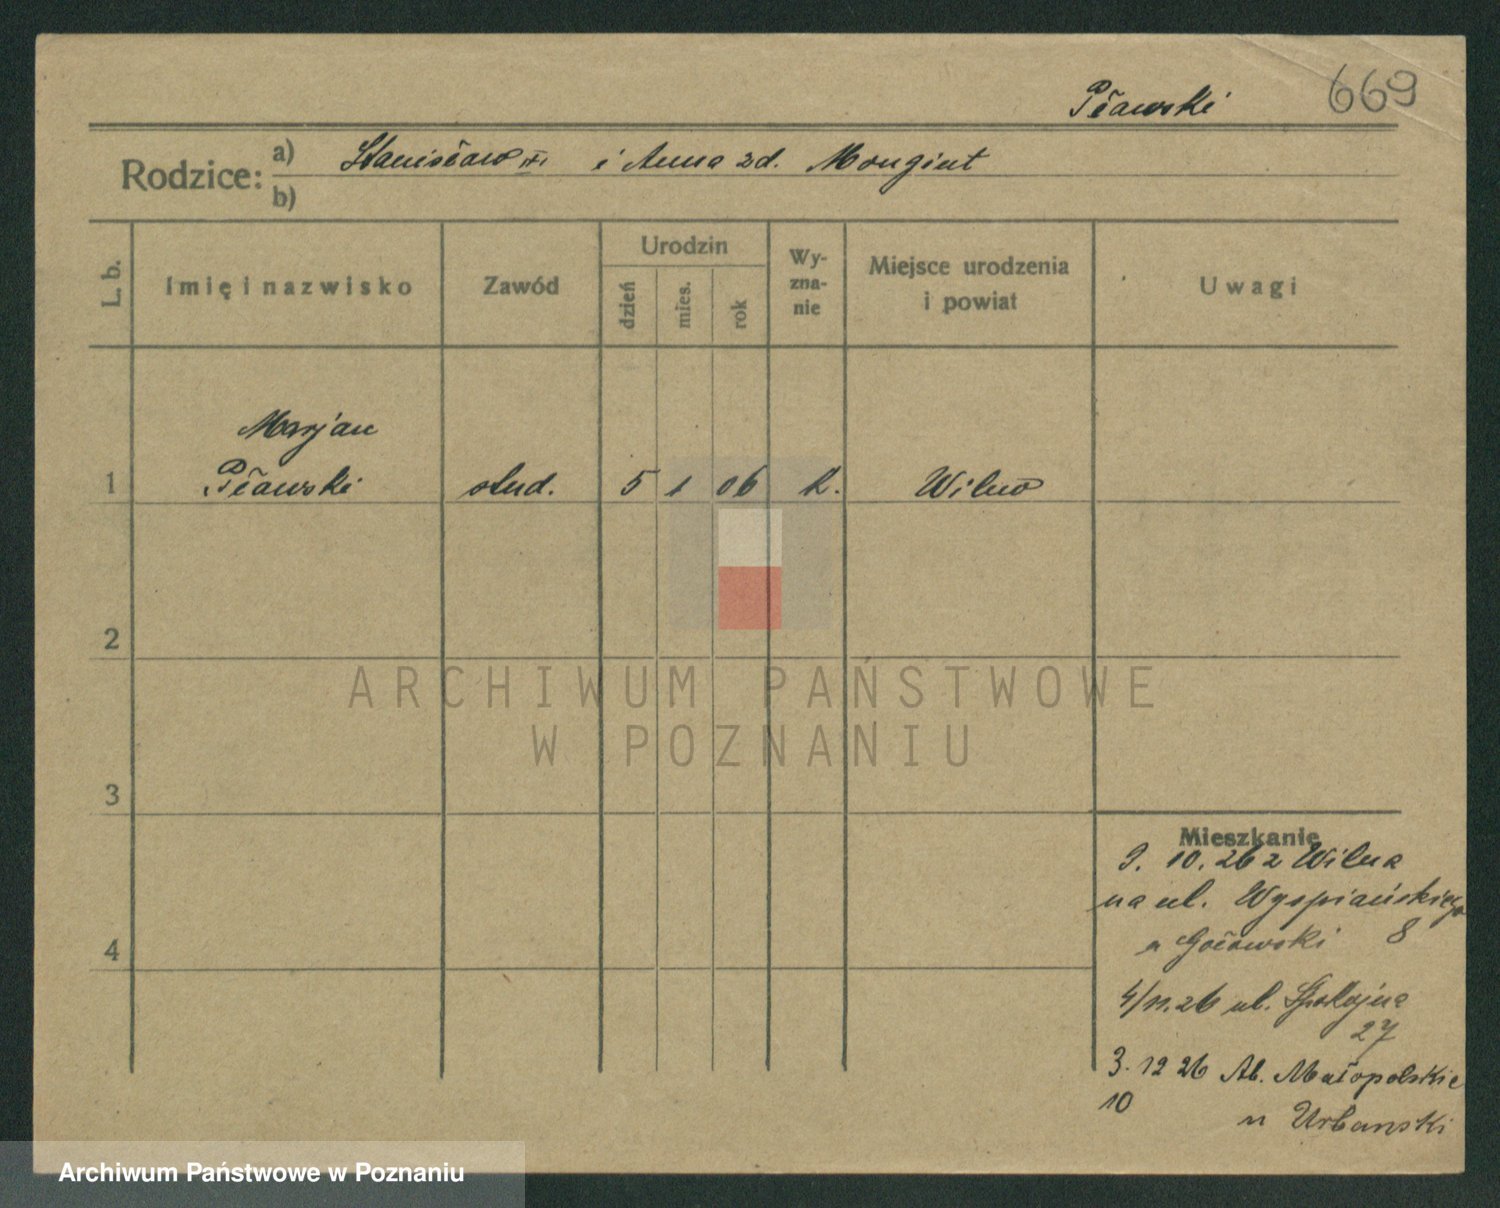 Pławski 669
Rodzice: a) Stanisław i Anna zd. Mongint
b)
L. b. Imię i nazwisko Zawód Urodzin Wyznanie Miejsce urodzenia i powiat Uwagi
dzień mies. rok
Marjan
1 Pławski stud. 5 1 06 k. Wilno
2
3
4
Mieszkanie
9. 10. 26 z Wilna
na ul. Wyspiańskiego
u Goławski 8
4/11.26 ul. Spokojna
27
3. 12 26 Al. Małopolskie
10 u Urbanski
ARCHIWUM PAŃSTWOWE
W POZNANIU
Archiwum Państwowe w Poznaniu